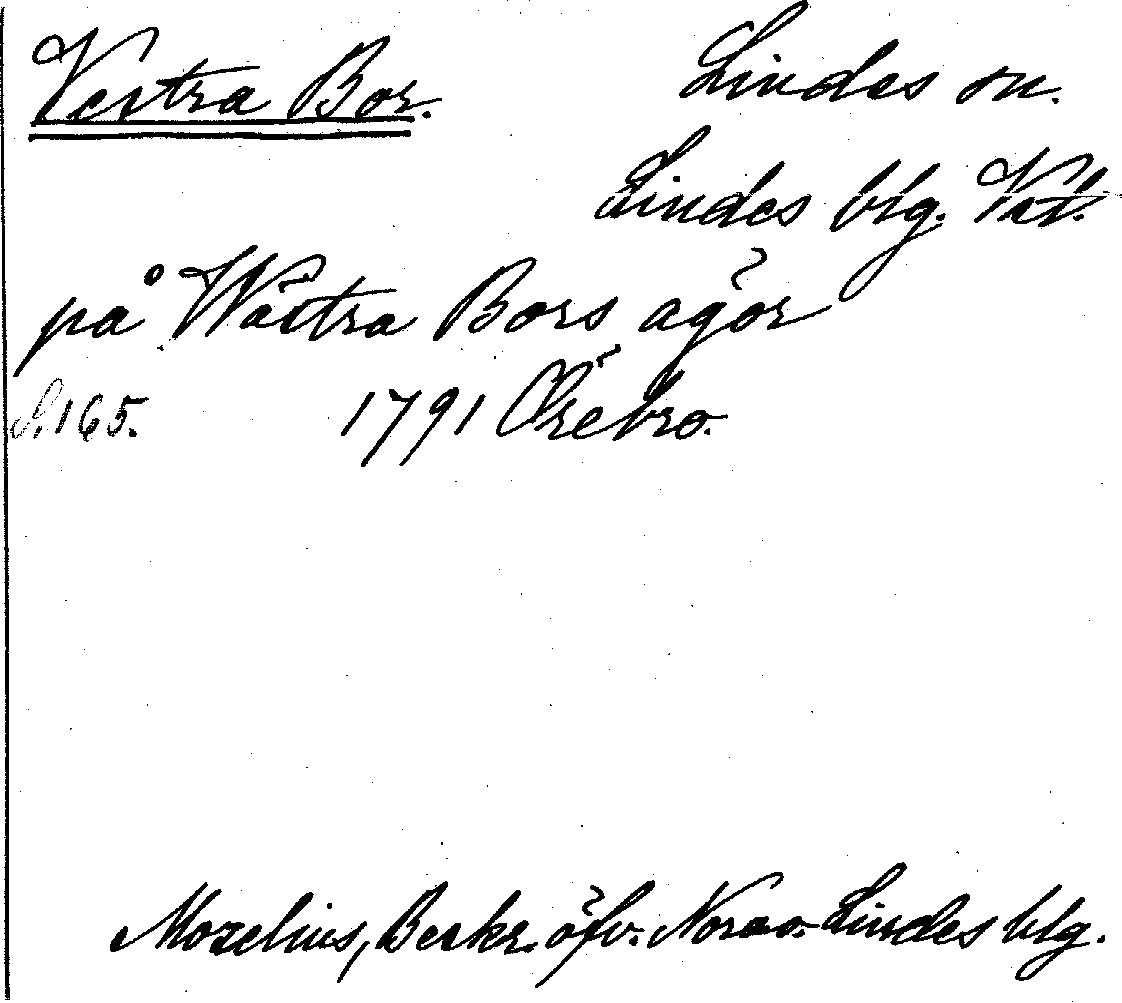 Vestra Bor.
Lindes sn.
Lindes blg. Vstl.
på Wästra Bors ägor
S. 165. 1791 Örebro.
Morelius, Beskr. öfv. Nora o. Lindes blg.